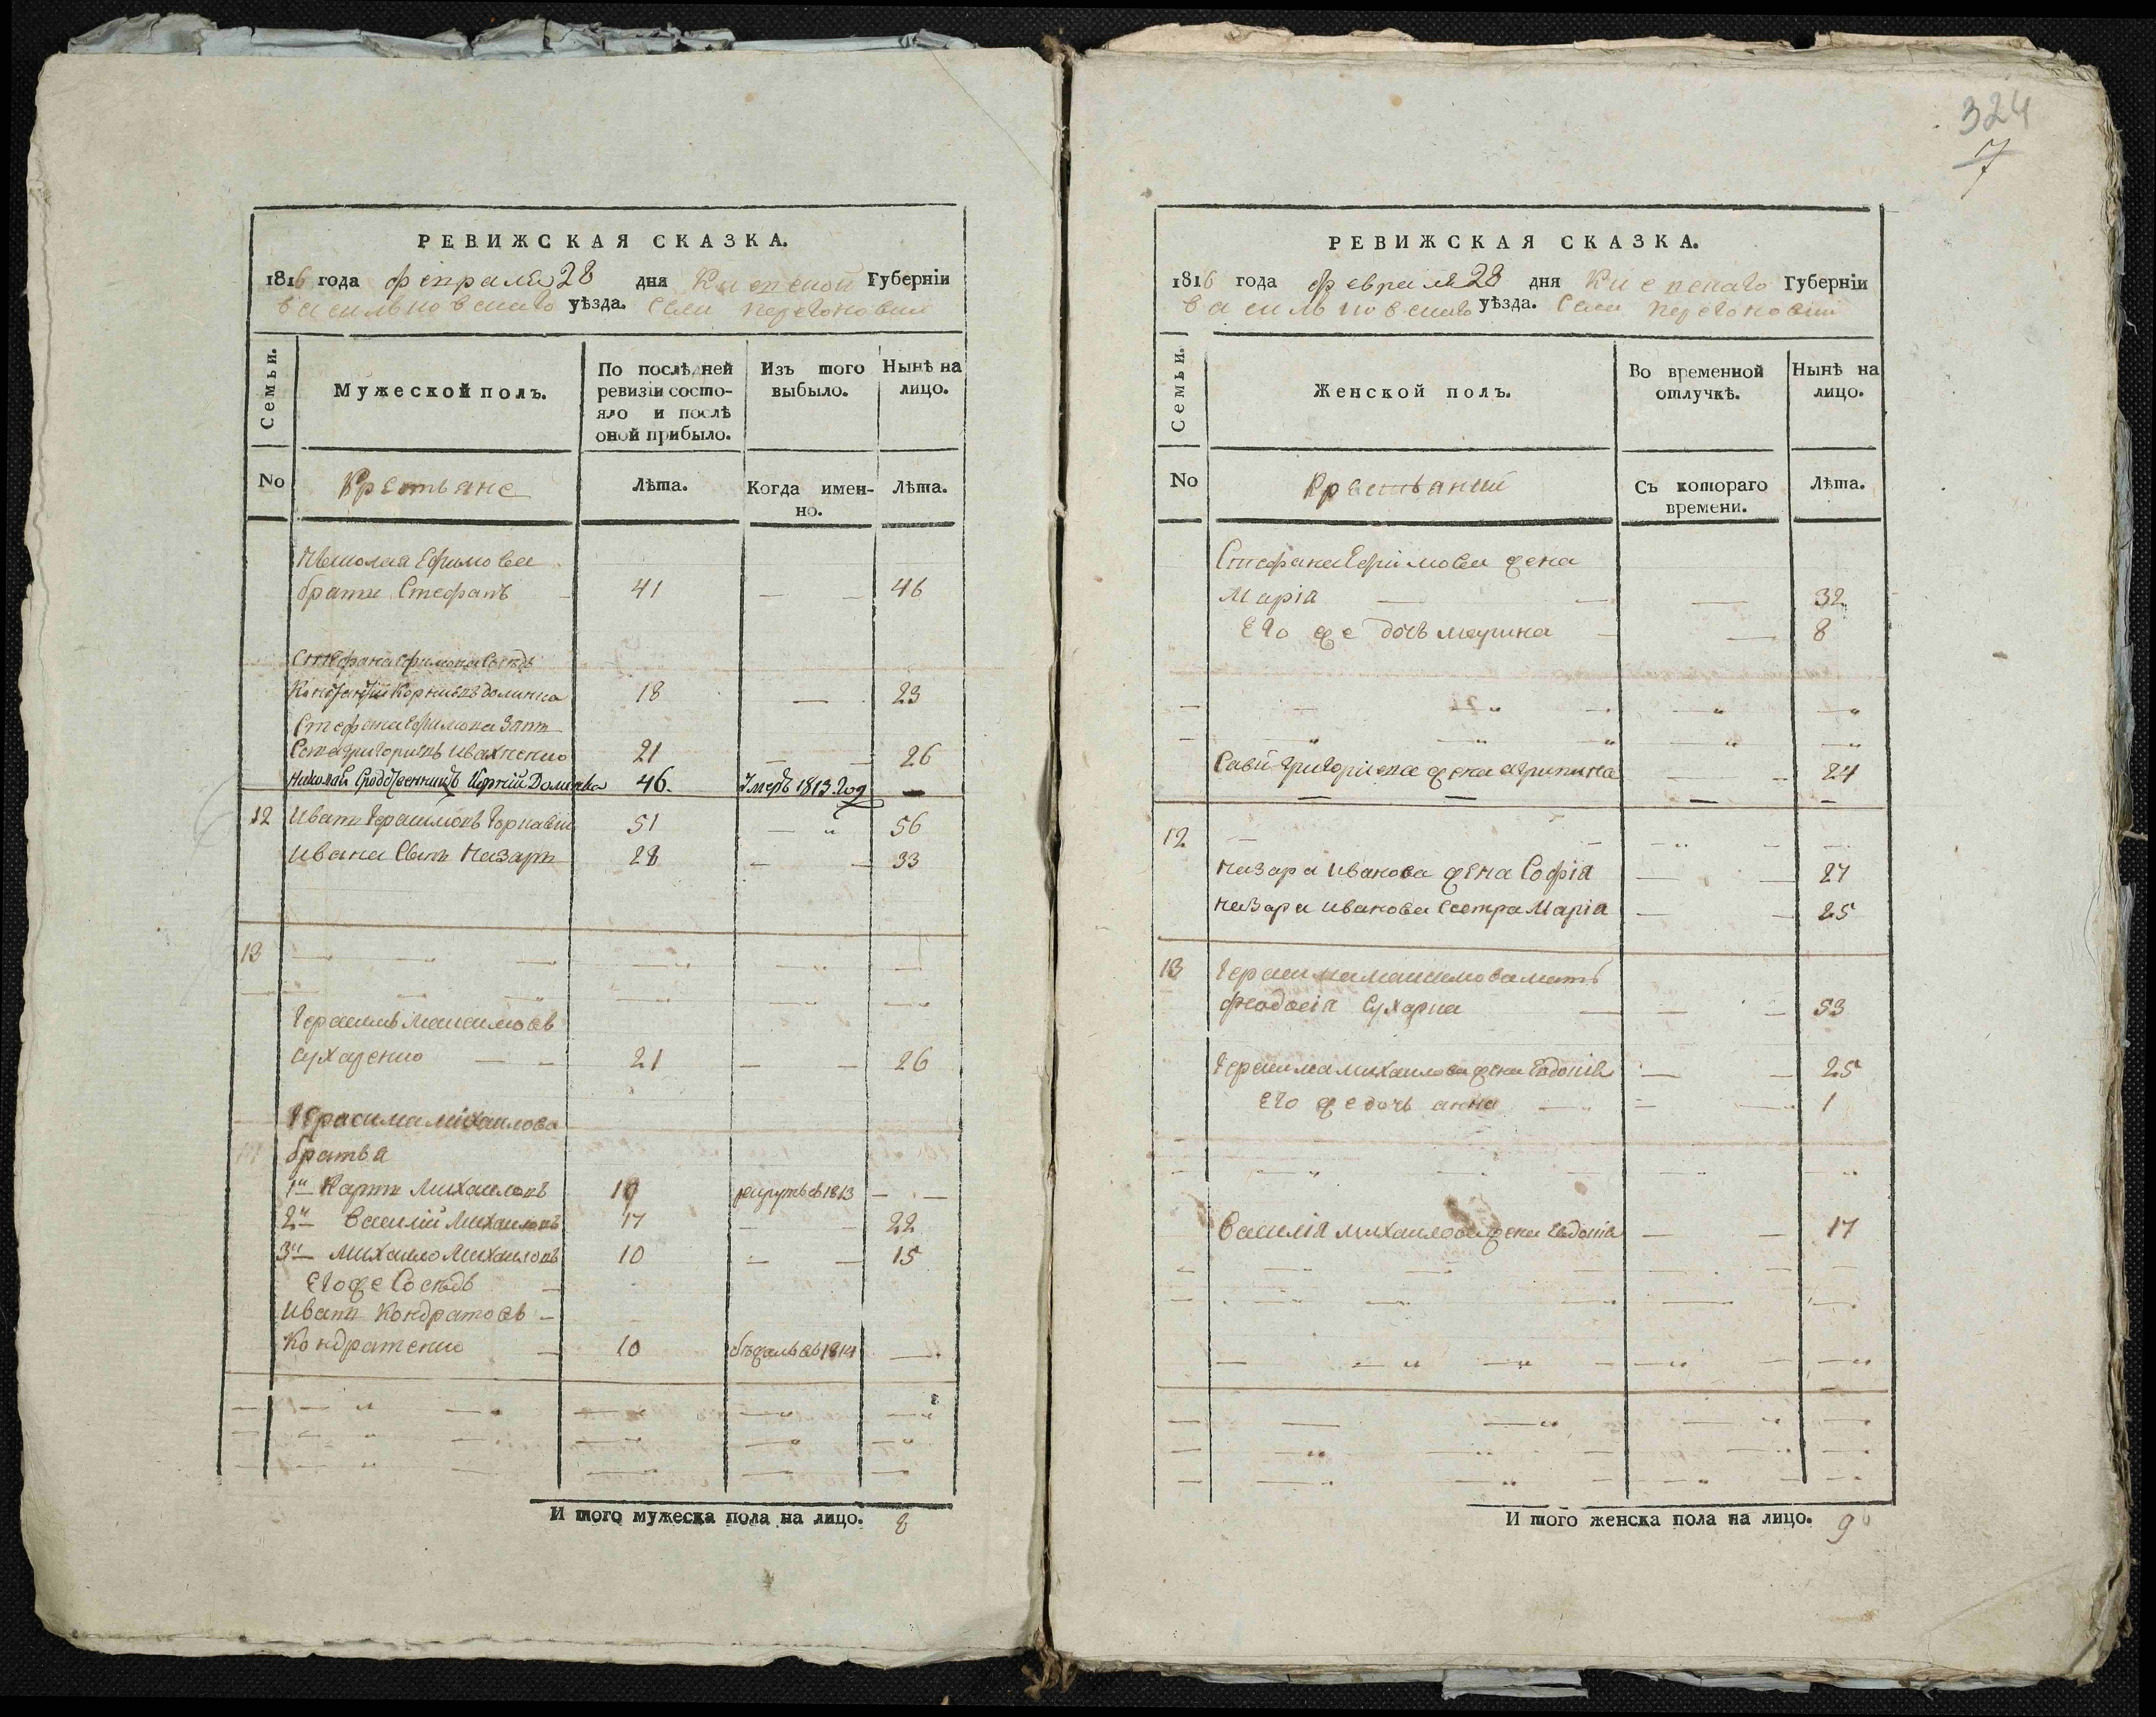 РЕВИЖСКАЯ СКАЗКА.
1816 года февраля 28 дня Киевской Губерніи
васильковскаго уѣзда. Села
Семьи.
Мужеской полъ.
По послѣдней ревизіи состояло и послѣ оной прибыло.
Изъ того выбыло.
Нынѣ на лицо.
No
Крестьяне
Лѣта.
Когда именно.
Лѣта.
Николая Ефимова
братъ Стефанъ 41 — — 46
Стефана Ефимова Соседъ
Корнѣевъ долинка 18 — 23
Стефана Ефимова Зять
Сава Григориевъ Ивахненко 21 — — 26
Николай Сродственникъ Долинка 46. Умеръ 1813. год —
12 Иванъ Герасимовъ 51 — 56
Ивана Сынъ Назаръ 28 — — 33
13
Герасимъ Максимовъ
Сухаренко — — 21 — — 26
Герасима Михаилова
братья
1й Карпъ Михаиловъ 19 рекрутъ въ 1813 — —
2й Василій Михаиловъ 17 — — 22
3й Михаило Михаиловъ 10 — — 15
Его же Соседъ
Иванъ Кондратовъ —
Кондратенко — 10 бѣжалъ въ 1814 —
И того мужеска пола на лицо. 8
324
7
РЕВИЖСКАЯ СКАЗКА.
1816 года февраля 28 дня Киевскаго Губерніи
васильковскаго уѣзда. Села
Семьи.
Женской полъ.
Во временной отлучкѣ.
Нынѣ на лицо.
No
Крестьянки
Съ котораго времени.
Лѣта.
Стефана Ефимова жена
Марія — — — 32
Его же дочь марина — — 8
Савы Григоріева жена агрипина — — 24
12
Назара Иванова жена Софія — — 27
Назара Иванова Сестра Марія — — 25
13 Герасима максимова мать
Феодосія Сухарка — — — 53
Герасима михаилова жена Евдокія — — 25
Его же дочь анна — — — 1
Василія михаилова жена Евдокія — — 17
И того женска пола на лицо. 9